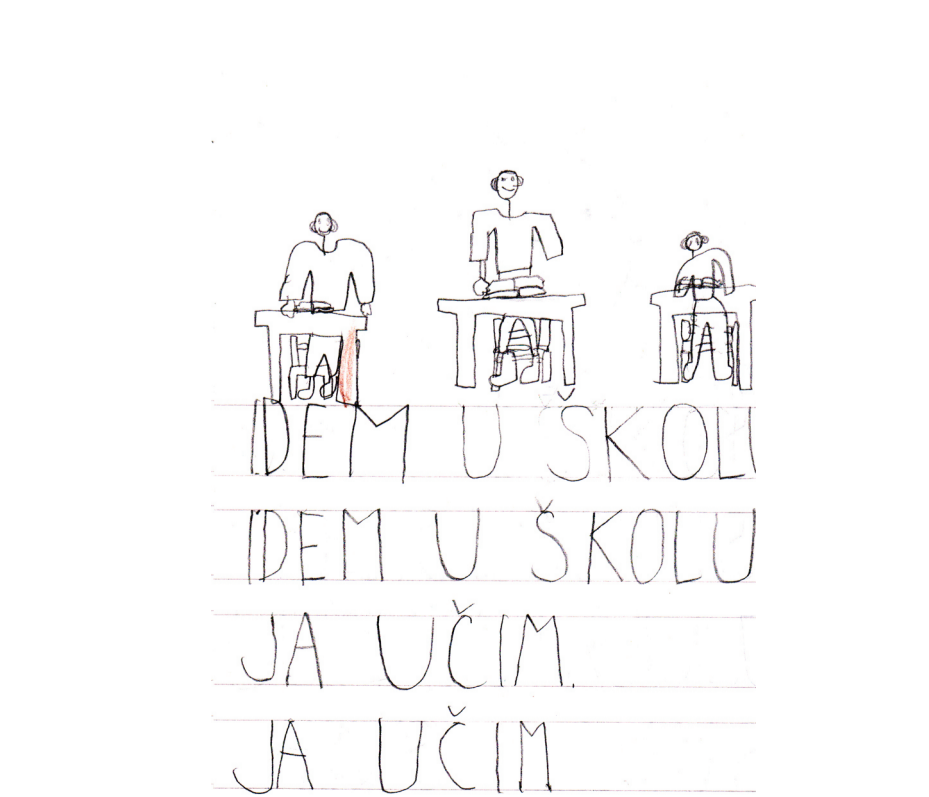 IDEM U ŠKOLU
IDEM U ŠKOLU
JA UČIM.
JA UČIM